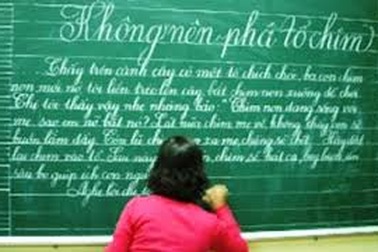 Không nên phá tổ chim
Thấy trên cành cây có một tổ chích choè, ba con chim
non mới nở, tôi liền trèo lên cây, bắt chim non xuống để chơi.
Chị tôi thấy vậy nhẹ nhàng bảo: "Chim non đang sống với
mẹ, sao em nỡ bắt nó? Lát nữa chim mẹ về, không thấy con sẽ
buồn lắm đấy. Còn lũ chim con xa mẹ chúng sẽ chết. Hãy đặt
lại chim vào tổ. Sau này chim sẽ hát ca, bay lượn, ăn
sâu bọ giúp ích con người
Nghe lời chị